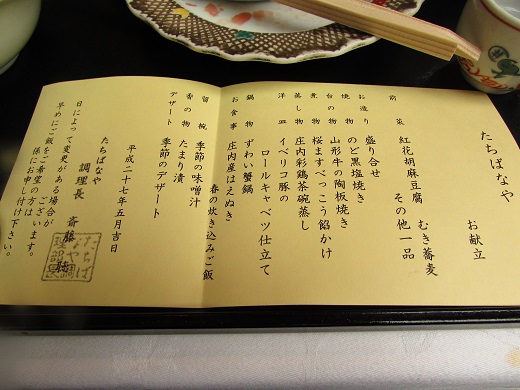 たちばなや
お献立
前菜　紅花胡麻豆腐　むき蕎麦
その他一品
お造り　盛り合せ
焼物　のど黒塩焼き
台の物　山形牛の陶板焼き
煮物　桜ますべっこう餡かけ
蒸し物　庄内彩鶏茶碗蒸し
洋皿　イベリコ豚の
ロールキャベツ仕立て
鍋物　ずわい蟹鍋
お食事　庄内産はえぬき
春の炊き込みご飯
留椀　季節の味噌汁
香の物　たまり漬
デザート　季節のデザート
平成二十七年五月吉日
たちばなや
調理長　斎藤
日によって変更がある場合がございます。
早めにご飯をご希望の方は係にお申し付け下さい。